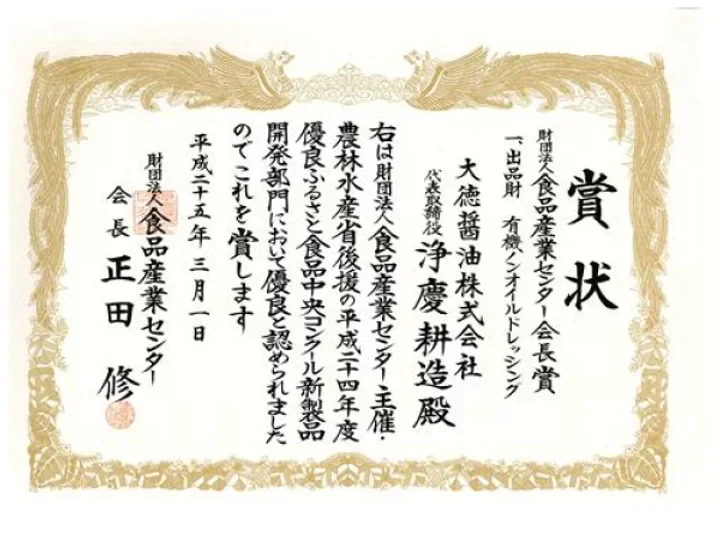 賞状
財団法人食品産業センター会長賞
一、出品財 有機ノンオイルドレッシング
大徳醤油株式会社
代表取締役 浄慶耕造殿
右は財団法人食品産業センター主催・
農林水産省後援の平成二十四年度
優良ふるさと食品中央コンクール新製品
開発部門において優良と認められました
のでこれを賞します
平成二十五年三月一日
財団法人食品産業センター
会長 正田 修